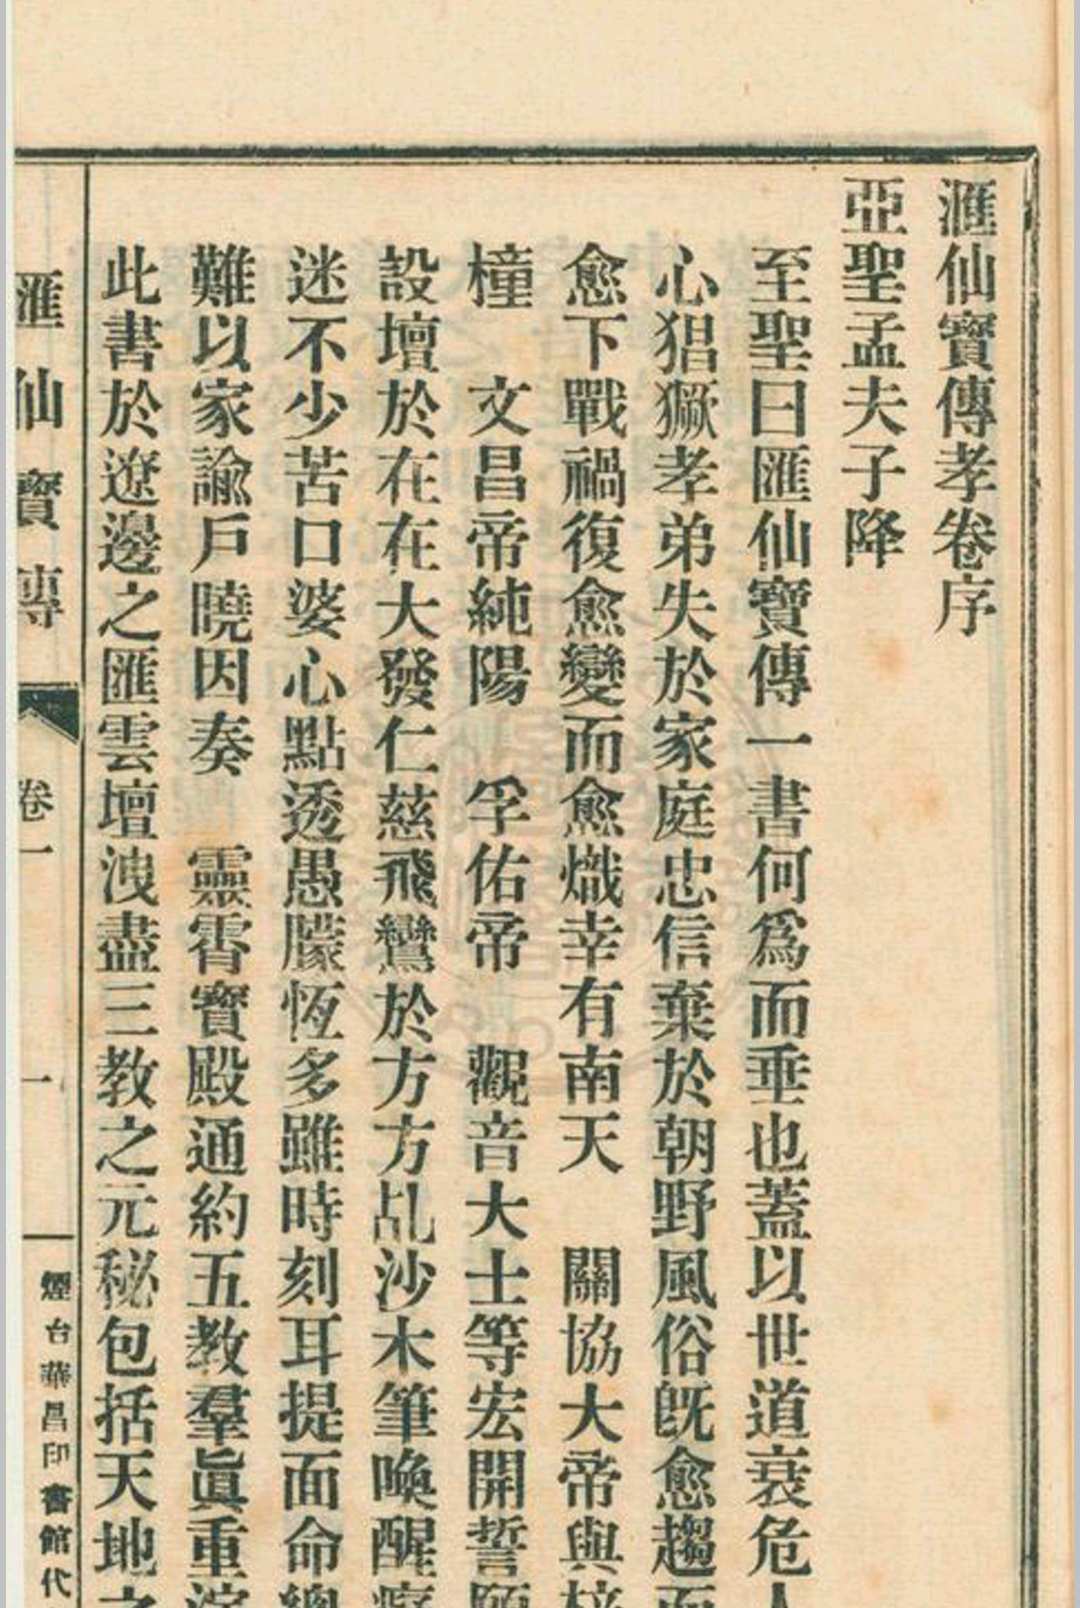 滙仙寶傳孝卷序
亞聖孟夫子降
至聖曰匯仙寶傳一書何爲而垂也蓋以世道衰危人
心猖獗孝弟失於家庭忠信棄於朝野風俗旣愈趨而
愈下戰禍復愈變而愈熾幸有南天　關協大帝與梓
橦　文昌帝純陽　孚佑帝　觀音大士等宏開誓願
設壇於在在大發仁慈飛鸞於方方乩沙木筆喚醒癡
迷不少苦口婆心點透愚朦恆多雖時刻耳提面命總
難以家諭戶曉因奏　靈霄寶殿通約五教羣眞重演
此書於遼邊之匯雲壇洩盡三教之元秘包括天地之
滙仙寶傳
卷一
一
煙台華昌印書館代